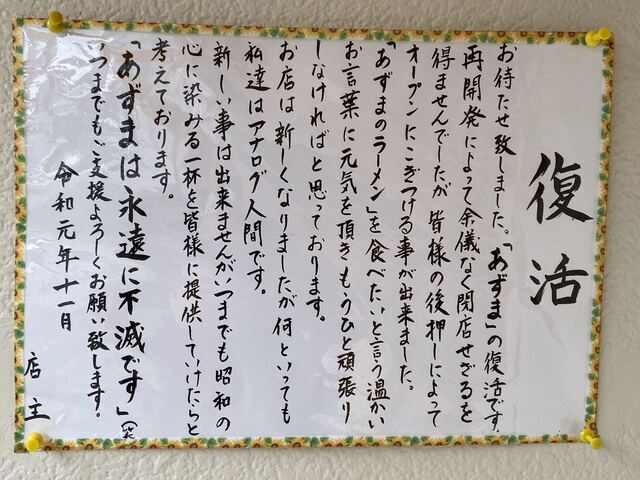 復活
お待たせ致しました。「あずま」の復活です。
再開発によって余儀なく閉店せざるを
得ませんでしたが皆様の後押しによって
オープンにこぎつける事が出来ました。
「あずまのラーメン」を食べたいと言う温かい
お言葉に元気を頂きもうひと頑張り
しなければと思っております。
お店は新しくなりましたが何といっても
私達はアナログ人間です。
新しい事は出来ませんがいつまでも昭和の
心に染みる一杯を皆様に提供していけたらと
考えております。
「あずまは永遠に不滅です」(笑)
いつまでもご支援よろしくお願い致します。
令和元年十一月
店主